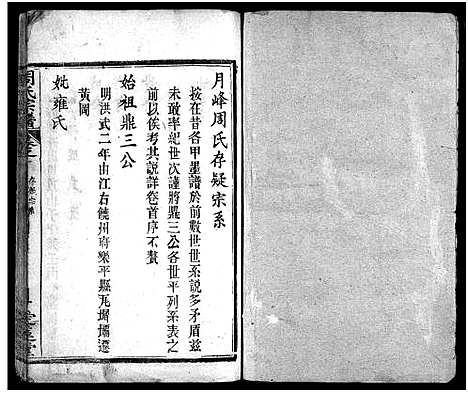 月峰周氏存疑宗系
按在昔各甲墨譜於前數世世系說多矛盾茲
未敢率紀世次謹將鼎三公各世平列系表之
前以俟考其說詳卷首序不贅
始祖鼎三公
明洪武二年由江右饒州府樂平縣瓦墀壩遷
黃岡
妣雍氏
周氏宗譜
存疑宗系